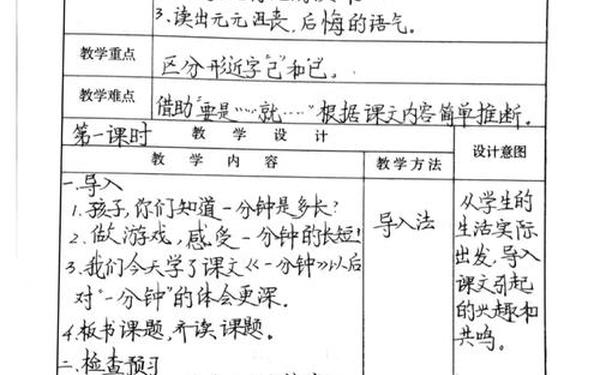 3.读出元元沮丧,后悔的语气。
教学重点
区分形近字"己"和已。
教学难点
借助"要是……就……"根据课文内容简单推断。
第一课时 教学设计
设计意图
教学内容 教学方法
一.导入
1.孩子,你们知道一分钟是多长?
2.做游戏,感受一分钟的长短!
3.我们今天学了课文《一分钟》以后
对"一分钟"的体会更深。
4.板书课题,齐读课题。
二.检查预习
导入法
从学生的
生活实际
出发,导入
课文引起
的兴趣和
共鸣。